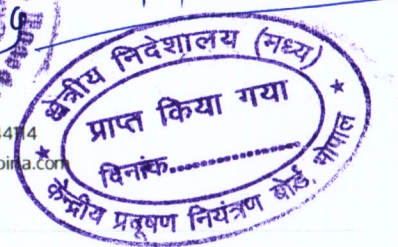 क्षेत्रीय निदेशालय (मध्य)
प्राप्त किया गया
दिनांक..................
केन्द्रीय प्रदूषण नियंत्रण बोर्ड, भोपाल